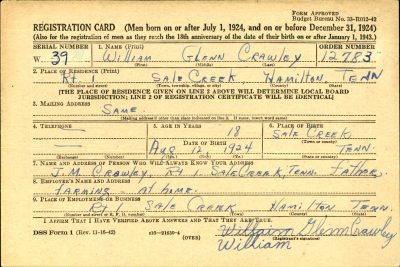 FORM APPROVED
Budget Bureau No. 33-R012-42
REGISTRATION CARD (Men born on or after July 1, 1924, and on or before December 31, 1924)
(Also for the registration of men as they reach the 18th anniversary of the date of their birth on or after January 1, 1943.)
SERIAL NUMBER 1. NAME (Print) ORDER NUMBER
W 39 William Glenn Crawley 12783
(First) (Middle) (Last)
2. PLACE OF RESIDENCE (Print)
Rt. 1 Sale Creek, Hamilton, Tenn
(Number and street) (Town, township, village, or city) (County) (State)
(THE PLACE OF RESIDENCE GIVEN ON LINE 2 ABOVE WILL DETERMINE LOCAL BOARD
JURISDICTION; LINE 2 OF REGISTRATION CERTIFICATE WILL BE IDENTICAL)
3. MAILING ADDRESS
Same
(Mailing address if other than place indicated on line 2. If same, insert word same)
4. TELEPHONE 5. AGE IN YEARS 6. PLACE OF BIRTH
18 Sale Creek
DATE OF BIRTH (Town or county)
Aug 12, 1924 Tenn.
(Exchange) (Number) (Mo.) (Day) (Yr.) (State or country)
7. NAME AND ADDRESS OF PERSON WHO WILL ALWAYS KNOW YOUR ADDRESS
J. M. Crawley, Rt 1 Sale Creek, Tenn. Father
8. EMPLOYER'S NAME AND ADDRESS
Farming - at home.
9. PLACE OF EMPLOYMENT OR BUSINESS
Rt 1 Sale Creek Hamilton Tenn.
(Number and street or R. F. D. number) (Town) (County) (State)
I AFFIRM THAT I HAVE VERIFIED ABOVE ANSWERS AND THAT THEY ARE TRUE.
DSS Form 1 (Rev. 11-16-42) 16—21630-4 (OVER)
Glenn Crawley
(Registrant's signature)
William